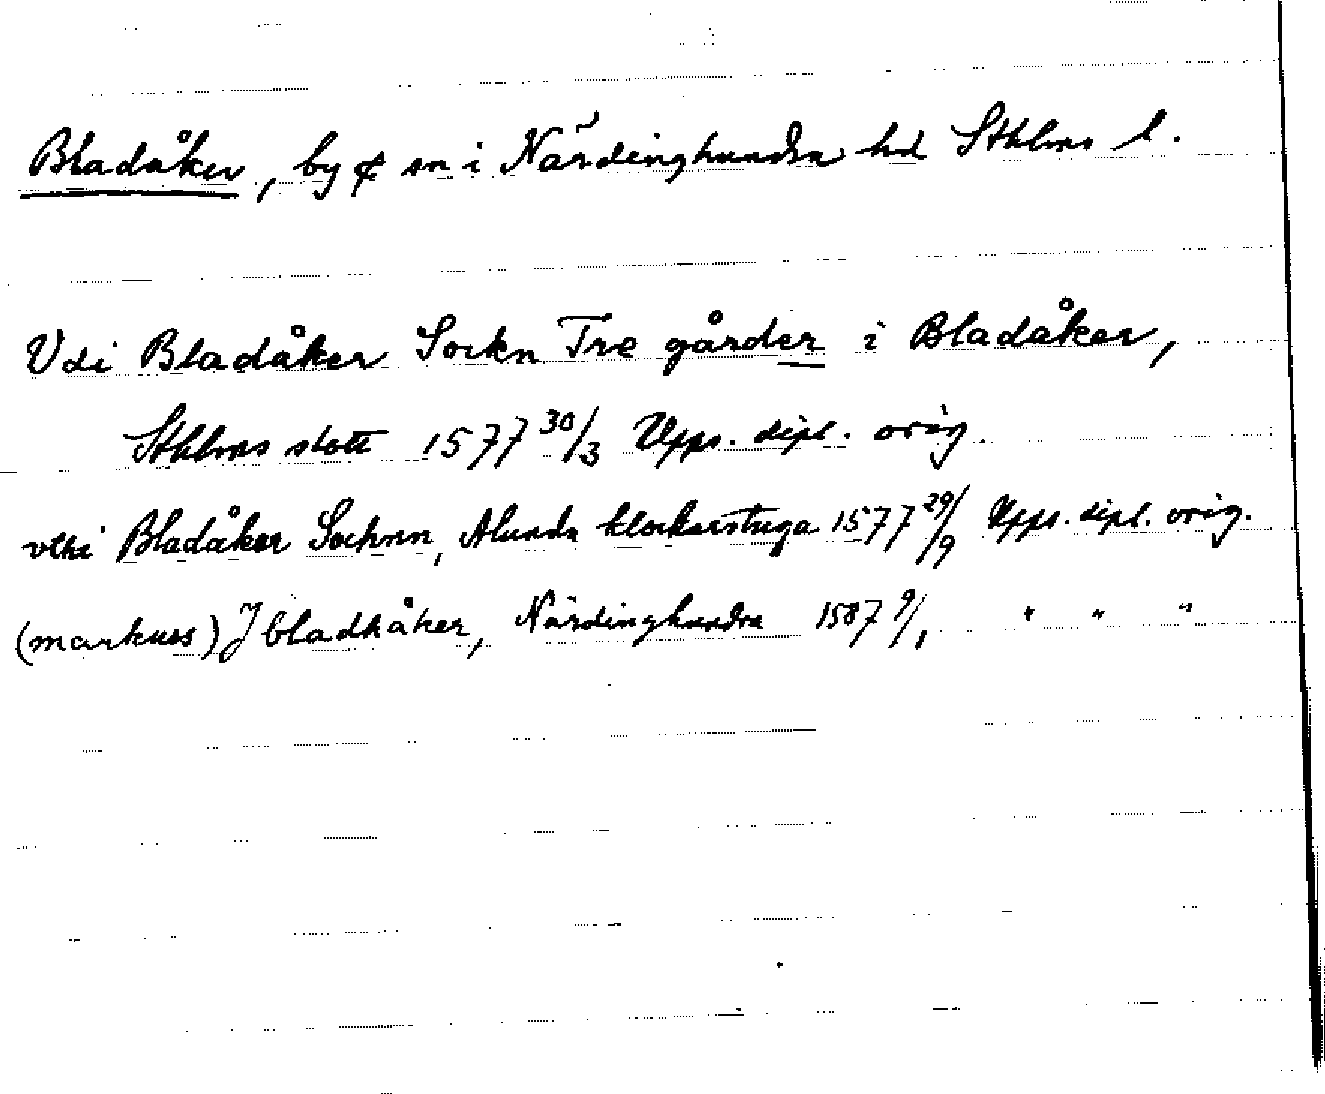 Bladåker, by & sn i Närdinghundra hd Sthlms l.
Vdi Bladåker Sockn Tre gårder i Bladåker,
Sthlms slott 1577 30/3 Upps. dipl. orig.
vthi Bladåker Sochnn, Alunda klockarstuga 1577 29/9 Upps. dipl. orig.
(markuss) J bladhåker, Närdinghundra 1587 9/1 " " "